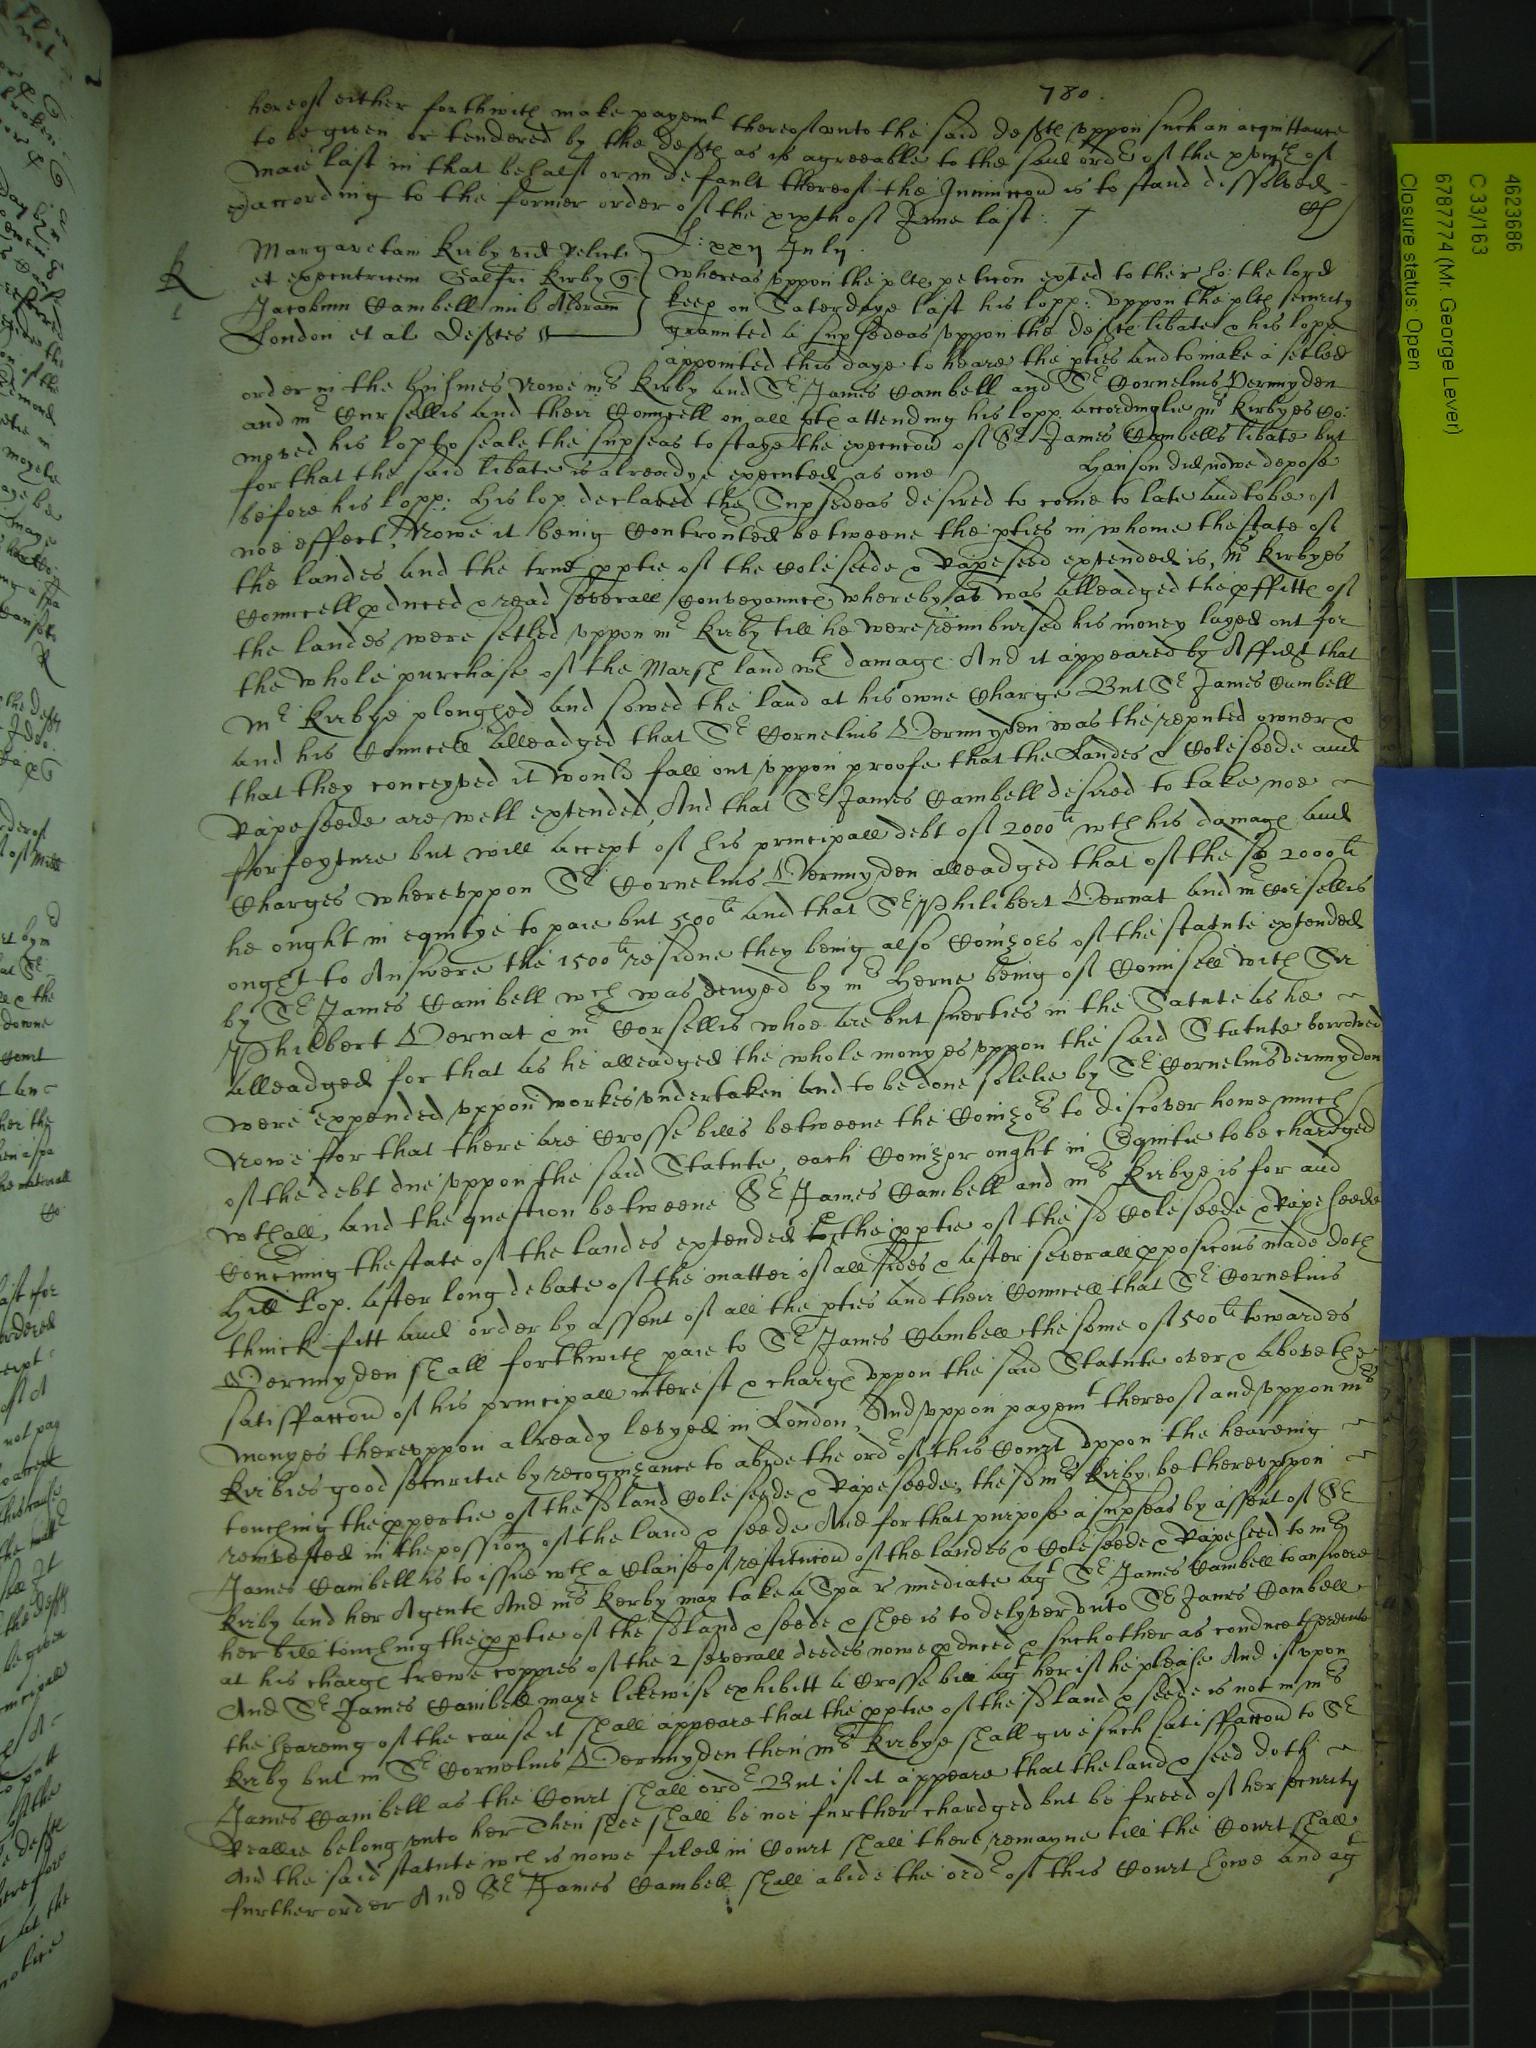 780.
hereof either forthwith make payemt thereof unto the said Deftes uppon such an acquittance
to be given or tendered by the Deftes as is agreeable to the said order of the of
Maie last in that behalf or in default thereof the Iniunccon is to stand dissolved
according to the former order of the xixth of June last.
J: xxij July
Margaretam Kirby vid relict
et executricem Galfri Kirby q
Jacobum Cambell mil Aldram
London et al Deftes
Whereas uppon the pltes peticon exhted to the right ho: the lord
keep on Saterdaye last his lopp: uppon the pltes security
graunted a supsedeas uppon the Deftes libate & his lopp
appointed this daye to heare the pties and to make a setled
order in the busines Nowe mrs Kirby and Sr James Cambell and Sr Cornelius Vermuyden
and mr Cursellis and their Councell on all ptes attending his lopp accordinglie mrs Kirbyes Co:
moved his lop to seale the supseas to staye the execucon of Sr James Cambells libate but
for that the said libate is alreadye executed as one Hanson did nowe depose
before his lopp: His lop declared the Supsedeas desired to come to late and to be of
noe effect, Nowe it being Controuted betweene the pties in whome the state of
the landes and the true pptie of the Coleseede & Rapeseed extended is, mrs Kirbyes
Councell pduced & read severall Conveyannces whereby as was alleadged the pffittes of
the landes were setled uppon mr Kirby till he were reimbursed his money layed out for
the whole purchase of the Marsh land wth damages: And it appeared by Affidt that
Mr Kirbye ploughed and sowed the land at his owne Charge But Sr James Cambell
and his Councell alleadged that Sr Cornelius Vermuyden was the reputed owner &
that they conceyved it would fall out uppon proofe that the Landes & Coleseede and
Rapeseede are well extended, And that Sr James Cambell desired to take noe
fforfeyture but will accept of his principall debt of 2000li wth his damages and
Charges whereuppon Sr Cornelius Vermuyden alleadged that of the sd 2000li
he ought in equitye to paie but 500li and that Sr Philibert Vernat and mr Corsellis
ought to Answere the 1500li residue they being also Conizors of the statute extended
by Sr James Cambell wch was denyed by mr Herne being of Counsell with Sir
Philibert Vernat & mr Corsellis whoe are but suerties in the Satute as he
alleadged for that as he alleadged the whole monyes uppon the said Statute borrowed
were expended uppon workes undertaken and to be done solelie by Sr Cornelius Vermuyden
Nowe ffor that there are Crosse bills betweene the Conizors to discover howe much
of the debt due uppon the said Statute, each Conizor ought in Equitie to be chardged
wthall, and the question betweene Sr James Cambell and mrs Kirbye is for and
Concrning the state of the landes extended & the pptie of the sd Coleseede & Rapeseede
His Lop. after long debate of the matter of all sides & after severall pposicons made doth
thinck fitt and order by assent of all the pties and their Councell that Sr Cornelius
Vermuyden shall forthwith paie to Sr James Cambell the some of 500li towardes
satisffaccon of his principall interest & charges uppon the said Statute over & above the
monyes thereuppon already levyed in London, And uppon payemt thereof and uppon mrs
Kirbies good securitie by recognizance to abyde the ordr of this Court uppon the heareing
touching the ppertie of the sd land Coleseede & Rapeseede, the sd mrs Kirby be thereuppon
reinvested in the possion of the land & seede And for that purpose a supseas by assent of Sr
James Cambell is to issue wth a Clause of restitucon of the landes & Coleseede & Rapeseed to mrs
Kirby and her Agentes And mrs Kerby may take a Spa r imediate agt Sr James Cambell to answere
her bill touching the pptie of the sd land & seede & shee is to delyver unto Sr James Cambell
at his charges trewe coppies of the 2 severall deedes nowe pduced & such other as conduce thereunto
And Sr James Cambell maye likewise exhibitt a Crosse bill agt her if he please And if upon
the heareing of the cause it shall appeare that the pptie of the sd land & seede is not in mrs
Kirby but in Sr Cornelius Vermuyden then mrs Kirbye shall give such satisffaccon to Sr
James Cambell as the Court shall ordr But if it appeare that the land & seed doth
Reallie belong unto her Then shee shall be noe further chardged but be freed of her security
And the said statute wch is nowe filed in Court shall there remayne till the Court shall
further order And Sr James Cambell shall abide the ordr of this Court howe and agt
4623686
C 33/163
6787774 (Mr. George Lever)
Closure status: Open